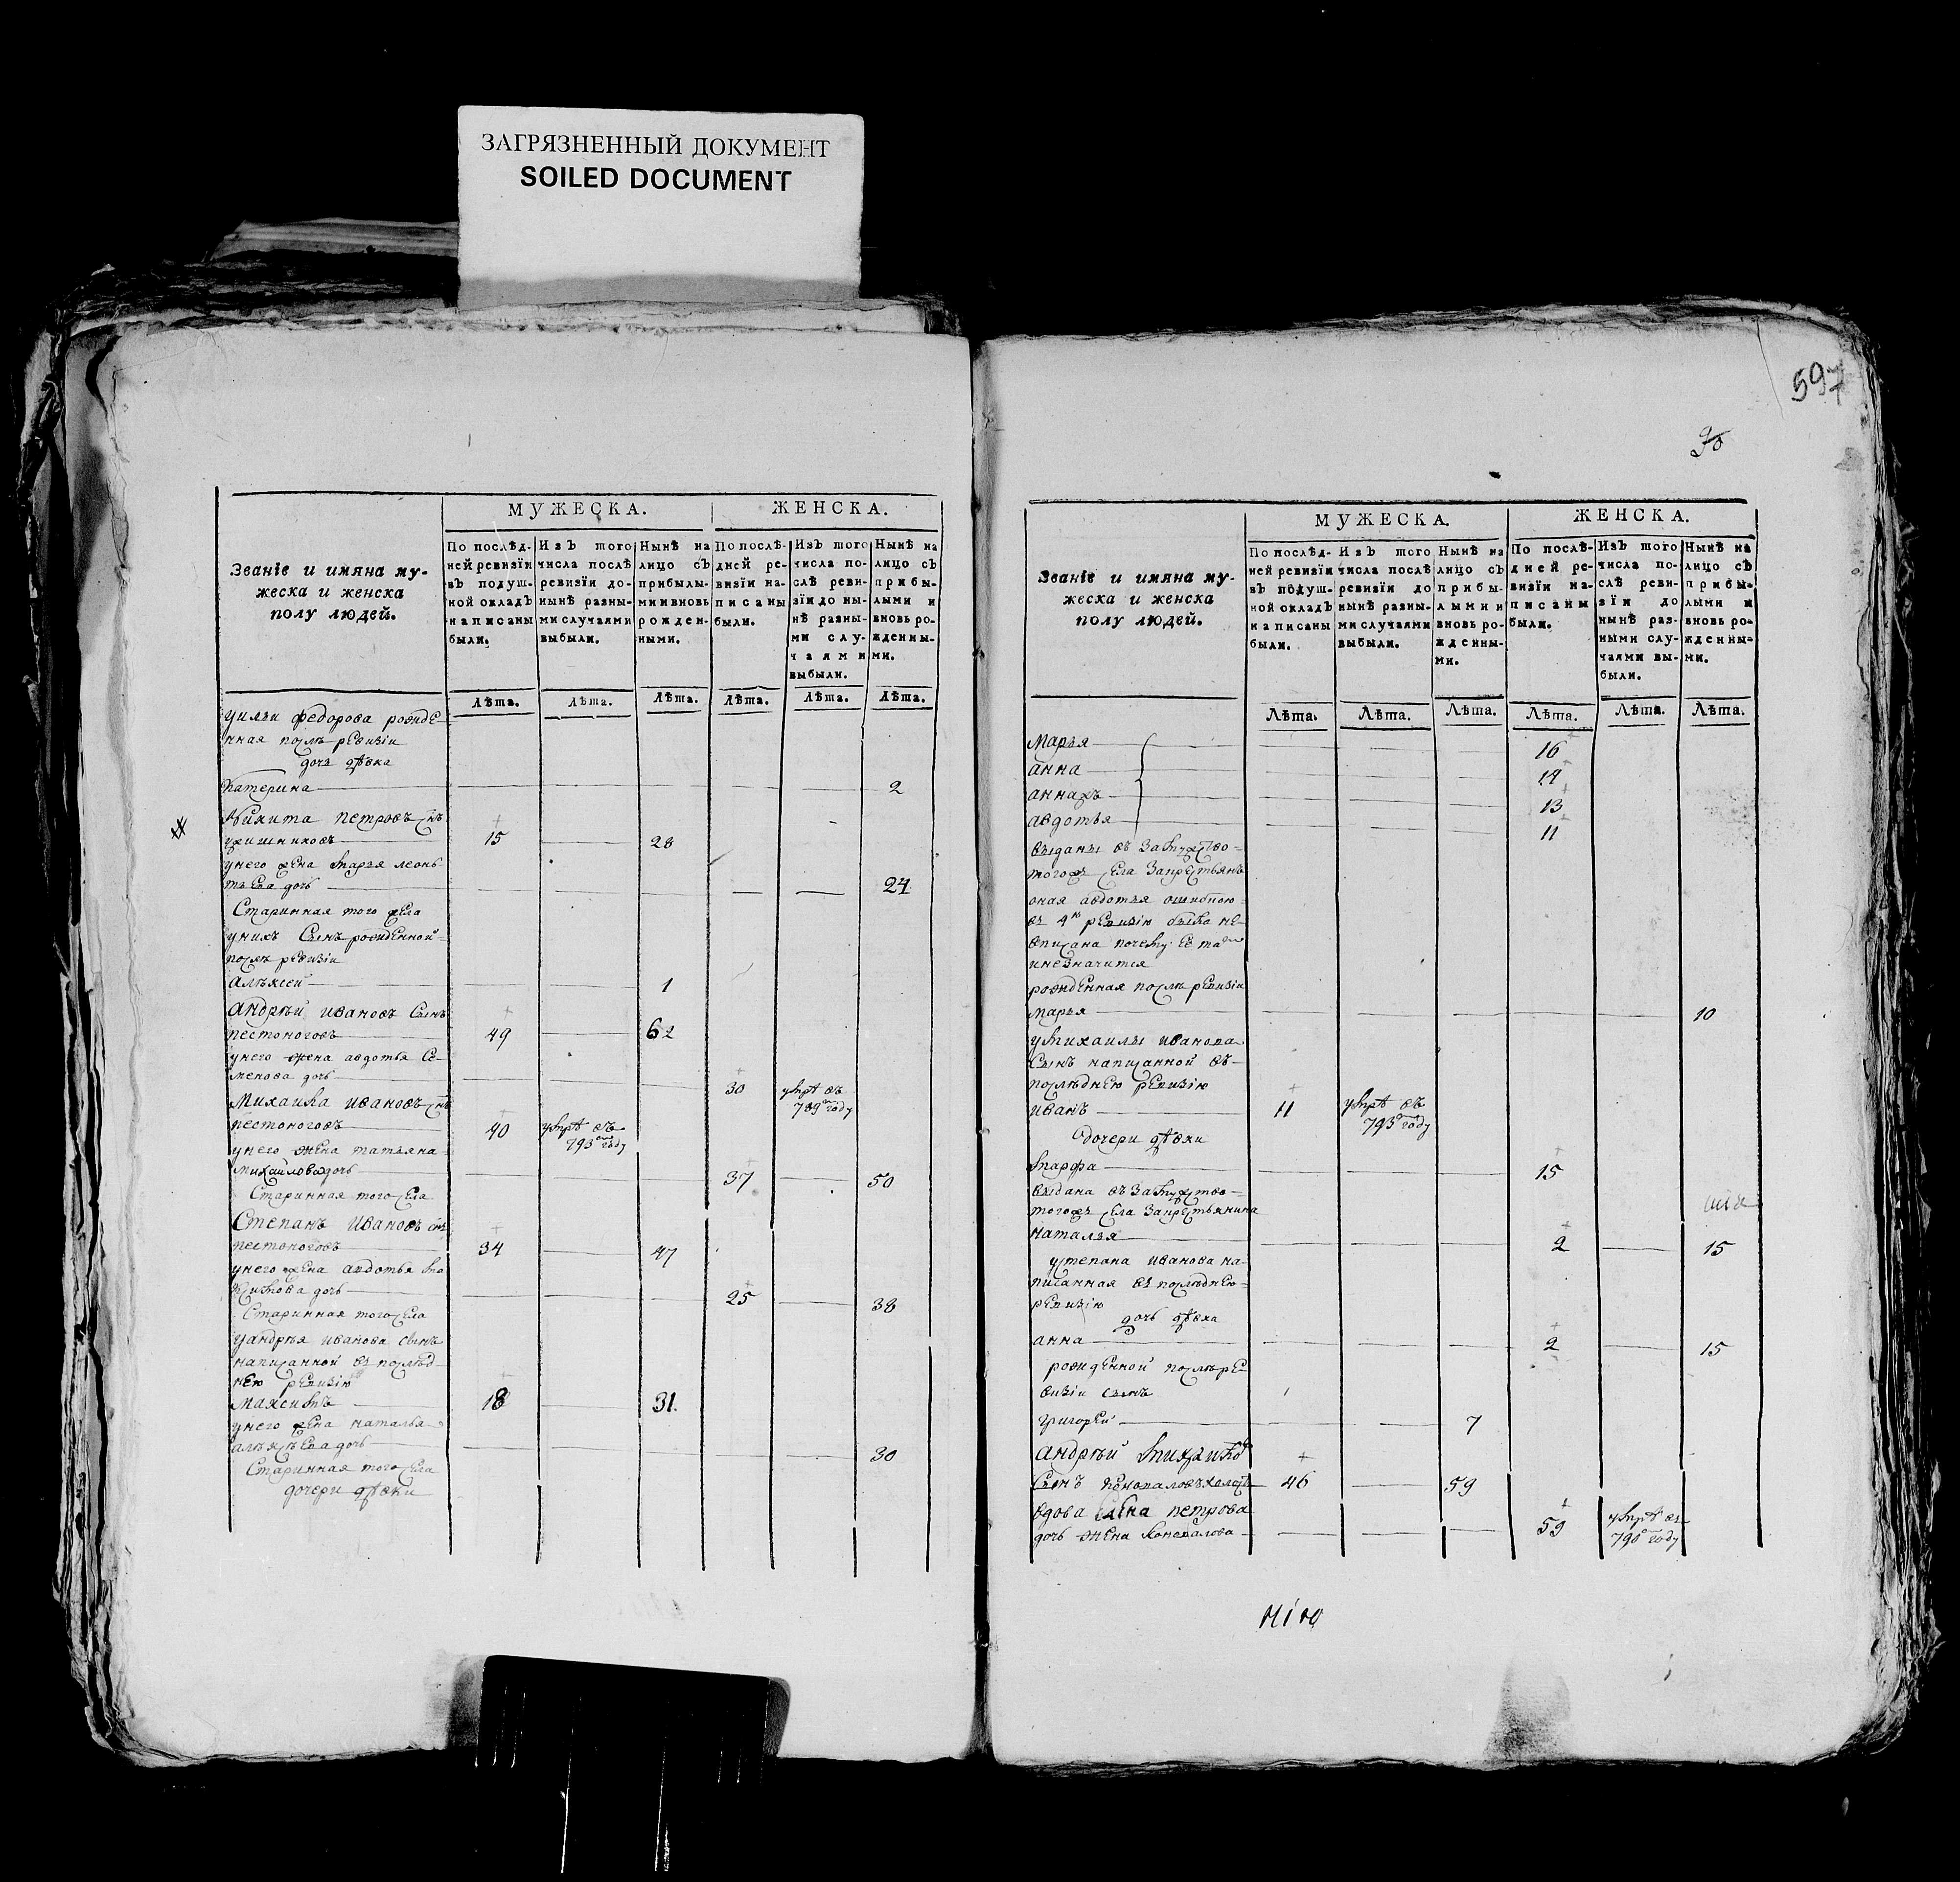 ЗАГРЯЗНЕННЫЙ ДОКУМЕНТ
SOILED DOCUMENT
МУЖЕСКА. ЖЕНСКА.
Званіе и имяна мужеска и женска полу людей.
По послѣдней ревизіи въ подушной окладъ написаны были.
Изъ того числа послѣ ревизіи донынѣ разными случаями выбыли.
Нынѣ на лицо съ прибылыми и вновь рожденными.
По послѣдней ревизіи написаны были.
Изъ того числа послѣ ревизіи до нынѣ разными случаями выбыли.
Нынѣ на лицо съ прибылыми и вновь рожденными.
Лѣта. Лѣта. Лѣта. Лѣта. Лѣта. Лѣта.
федорова рожде-
нная послѣ ревизіи
дочь дѣвка
Катерина 2
Никита петровъ снъ
15 28
унего жена марья леонь-
тьева дочь 24
Старинная того села
унихъ Сынъ рожденной
послѣ ревизіи
алѣксей 1
андрѣй ивановъ Сынъ
пестоноговъ 49 62
унего жена авдотья Се-
менова дочь 30 умрѣ въ 789м году
Михаила ивановъ снъ
пестоноговъ 40 умрѣ въ 793м году
унего жена татьяна
михайлова дочь 37 50
Старинная того села
Степанъ ивановъ снъ
пестоноговъ 34 47
унего жена авдотья ма-
ксимова дочь 25 38
Старинная того села
уандрѣя иванова сынъ
написанной въ послѣд-
нею ревизію
максимъ 18 31
унего жена наталья
алѣксѣева дочь 30
Старинная того села
дочери дѣвки
597
МУЖЕСКА. ЖЕНСКА.
Званіе и имяна мужеска и женска полу людей.
По послѣдней ревизіи въ подушной окладъ написаны были.
Изъ того числа послѣ ревизіи до нынѣ разными случаями выбыли.
Нынѣ на лицо съ прибылыми и вновь рожденными.
По послѣдней ревизіи написаны были.
Изъ того числа послѣ ревизіи до нынѣ разными случаями выбыли.
Нынѣ на лицо съ прибылыми и вновь рожденными.
Лѣта. Лѣта. Лѣта. Лѣта. Лѣта. Лѣта.
марья 16
анна 14
аннажъ 13
авдотья 11
выданы въ замужство
тогожъ села Закрестьянъ
оная авдотья ошибкою
въ 4ю ревизію была не-
вписана почему ее тамъ
инезначится
рожденная послѣ ревизіи
марья 10
умихаилы иванова
Сынъ написанной въ
послѣднею ревизію
иванъ 11 умрѣ въ 793м году
дочери дѣвки
марфа 15
выдана въ замужство
тогожъ села Закрестьянина
наталья 2 15
устепана иванова на-
писанная въ послѣднею
ревизію
дочь дѣвка
анна 2 15
рожденной послѣ ре-
визіи сынъ
григорей 7
андрѣй
Сынъ коноваловъ холостъ 46 59
вдова елена петрова
дочь жена Коновалова 59 умрѣ въ году